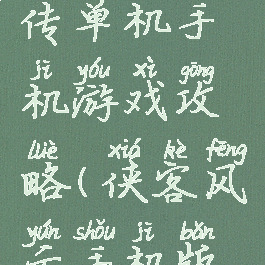 传单机手
jī yóu xì gōng
机游戏攻
lüè xiá kè fēng
略(侠客风
yún shǒu jī bǎn
云手机版